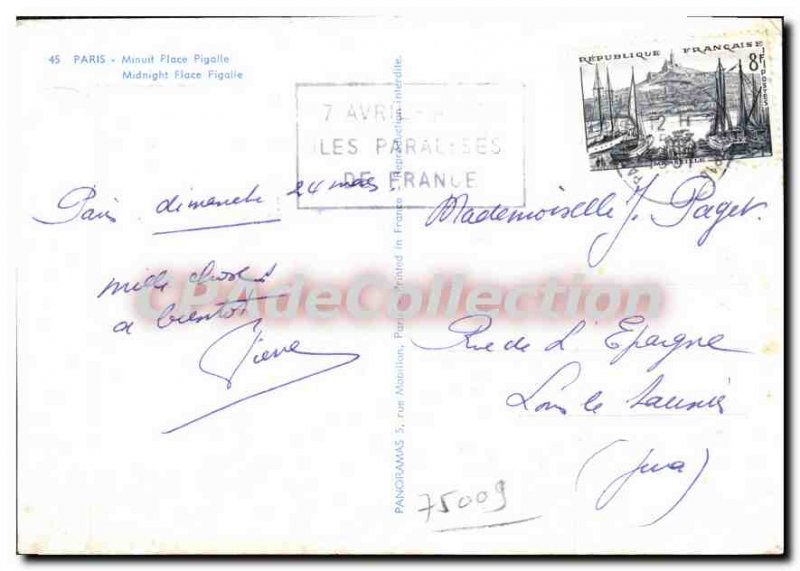 45 PARIS - Minuit Place Pigalle
Midnight Place Pigalle
REPUBLIQUE FRANÇAISE
8F
POSTES
7 AVRIL
LES PARALYSES
DE FRANCE
Paris dimanche 24 mars
mille choses
a bientot
Pierre
Mademoiselle J. Paget.
Rue de L'Epargne
Lons le Saunier
(Jura)
PANORAMAS 5, rue Mabillon, Paris - Printed in France - Reproduction interdite.
CPAdeCollection
75009